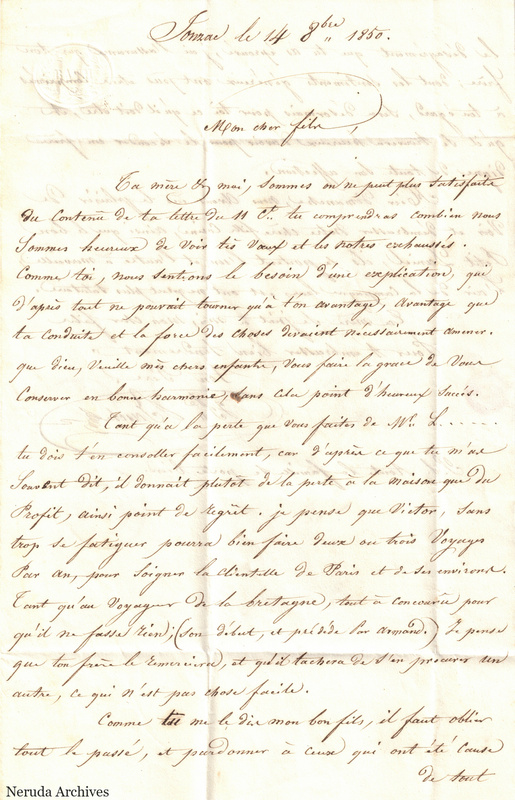 Jonzac le 14 8bre 1850.
Mon cher fils,
Ta mère & moi, sommes on ne peut plus satisfaits
du Contenu de ta lettre du 11 Ct. tu comprendras combien nous
Sommes heureux de voir tes vœux et les notres exhaussés.
Comme toi, nous sentions le besoin d'une explication, qui
d'après tout ne pouvait tourner qu'à ton avantage, avantage que
ta conduite et la force des choses devaient nécessairement amener.
que dieu, veuille mes chers enfants, vous faire la grace de vous
Conserver en bonne harmonie, sans cela point d'heureux succès.
Tant qu'a la perte que vous faites de Mr. L......
tu dois t'en consoller facilement, car d'après ce que tu m'as
Souvent dit, il donnait plutôt de la perte a la maison que du
Profit, ainsi point de regrêt. je pense que Victor, sans
trop se fatiguer pourra bien faire deux ou trois Voyages
Par An, pour soigner la Clientelle de Paris et de ses environs.
Tant qu'au Voyageur de la bretagne, tout à concouru pour
qu'il ne fasse rien; (Son début, et précédé par armand.) Je pense
que ton frère le remerciera, et qu'il tachera de s'en procurer un
autre, ce qui n'est pas chose facile.
Comme tu me le dis mon bon fils, il faut oblier
tout le passé, et pardonner à ceux qui ont été cause
de tout
Neruda Archives